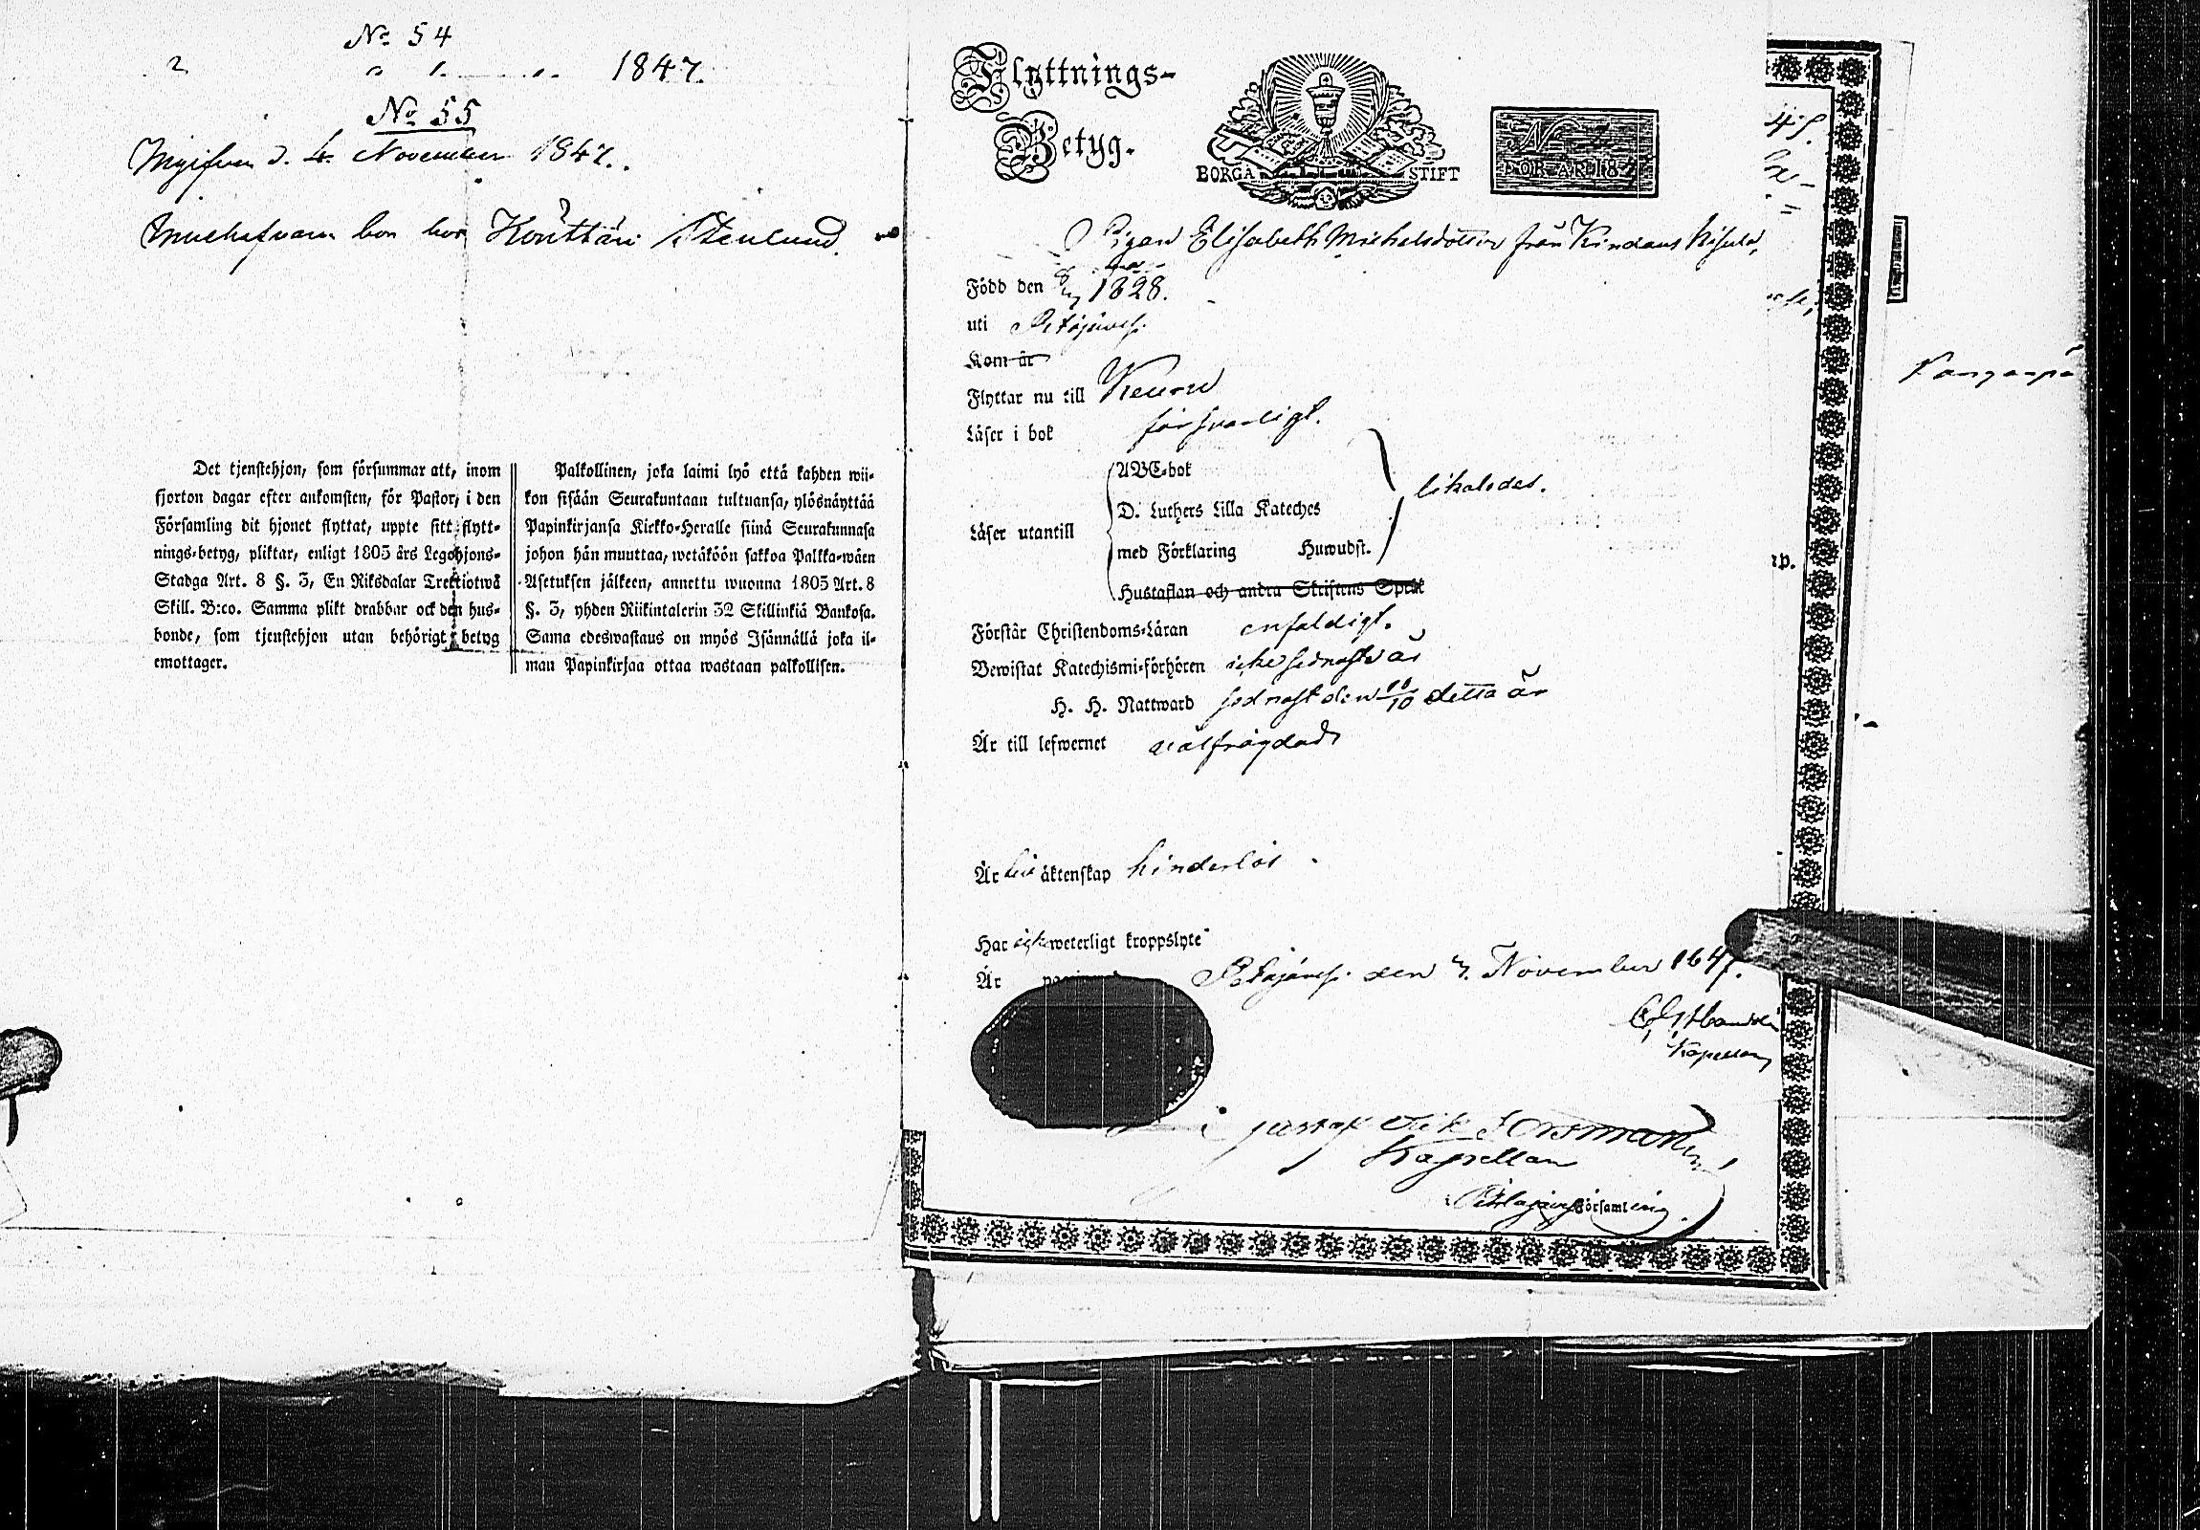 No 54
2 1847.
No 55
Ingifven d. 4 November 1847.
Innehafvaren bor hos Stenlund.
Det tjenstehjon, som försummar att, inom
fjorton dagar efter ankomsten, för Pastor, i den
Församling dit hjonet flyttat, uppte sitt flytt-
nings-betyg, pliktar, enligt 1805 års Legohjons-
Stadga Art. 8 §. 3, En Riksdalar Trettiotwå
Skill. B:co. Samma plikt drabbar ock den hus-
bonde, som tjenstehjon utan behörigt betyg
emottager.
Palkollinen, joka laimi lyö että kahden wii-
kon sisään Seurakuntaan tultuansa, ylösnäyttää
Papinkirjansa Kirkko-Heralle siinä Seurakunnasa
johon hän muuttaa, wetäköön sakkoa Palkka-wäen
Asetuksen jälkeen, annettu wuonna 1805 Art. 8
§. 3, yhden Riikintalerin 32 Skillinkiä Bankosa.
Sama edeswastaus on myös Isännällä joka il-
man Papinkirjaa ottaa wastaan palkollisen.
Flyttnings-
Betyg.
BORGÅ STIFT
No
FÖR ÅR 18
Pigan Elisabeth Michelsdotter från
Född den 1828.
uti Petäjäves.
Kom år
Flyttar nu till Keuru
Läser i bok försvarligt.
Läser utantill
ABC-bok
D. Luthers Lilla Kateches
med Förklaring Huwudst.
likaledes.
Hustaflan och andra Skriftens Språk
Förstår Christendoms-Läran enfaldigt.
Bewistat Katechismi-förhören icke sednaste år
H. H. Nattward sednast den 10 detta år
Är till lefwernet välfrägdad
Är till äktenskap hinderlös
Har icke weterligt kroppslyte
Är
Petäjäves. den November 1847.
Kapellan
Gustaf Erik Forsman
Kapellan
i Petäjäves Församling.
Kangaspä